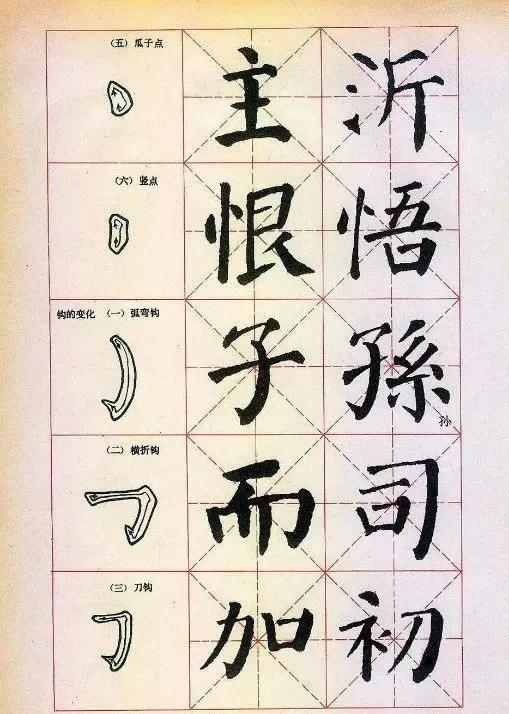 （五）瓜子点
主 沂
（六）竖点
恨 悟
钩的变化 （一）弧弯钩
子 孫
孙
（二）横折钩
而 司
（三）刀钩
加 初